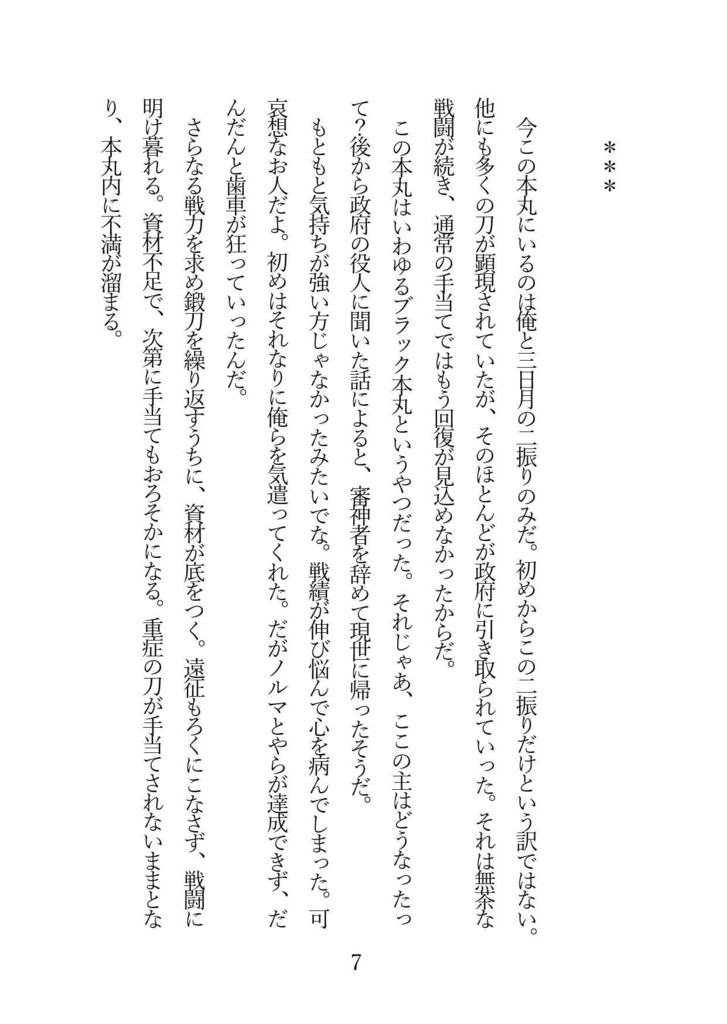 ＊＊＊
　今この本丸にいるのは俺と三日月の二振りのみだ。初めからこの二振りだけという訳ではない。
他にも多くの刀が顕現されていたが、そのほとんどが政府に引き取られていった。それは無茶な
戦闘が続き、通常の手当てではもう回復が見込めなかったからだ。
　この本丸はいわゆるブラック本丸というやつだった。それじゃあ、ここの主はどうなったっ
て？後から政府の役人に聞いた話によると、審神者を辞めて現世に帰ったそうだ。
　もともと気持ちが強い方じゃなかったみたいでな。戦績が伸び悩んで心を病んでしまった。可
哀想なお人だよ。初めはそれなりに俺らを気遣ってくれた。だがノルマとやらが達成できず、だ
んだんと歯車が狂っていったんだ。
　さらなる戦力を求め鍛刀を繰り返すうちに、資材が底をつく。遠征もろくにこなさず、戦闘に
明け暮れる。資材不足で、次第に手当てもおろそかになる。重症の刀が手当てされないままとな
り、本丸内に不満が溜まる。
7